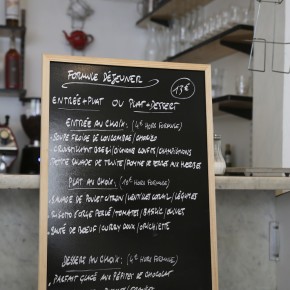 FORMULE DÉJEUNER
13€
ENTRÉE+PLAT OU PLAT+DESSERT
ENTRÉE AU CHOIX: (4€ HORS FORMULE)
SOUPE FROIDE DE CONCOMBRE/CHORIZO
CROUSTILLANT BREBIS/OIGNONS CONFITS/CHAMPIGNONS
PETITE SALADE DE TRUITE/POMME DE TERRE AUX HERBES
PLAT AU CHOIX: (10€ HORS FORMULE)
SALADE DE POULET CITRON/LENTILLES CORAIL/LÉGUMES
RISOTTO D'ORGE PERLÉ/TOMATES/BASILIC/OLIVES
SAUTÉ DE BŒUF/CURRY DOUX/ORICHIETTE
DESSERT AU CHOIX: (4€ HORS FORMULE)
PARFAIT GLACÉ AUX PÉPITES DE CHOCOLAT